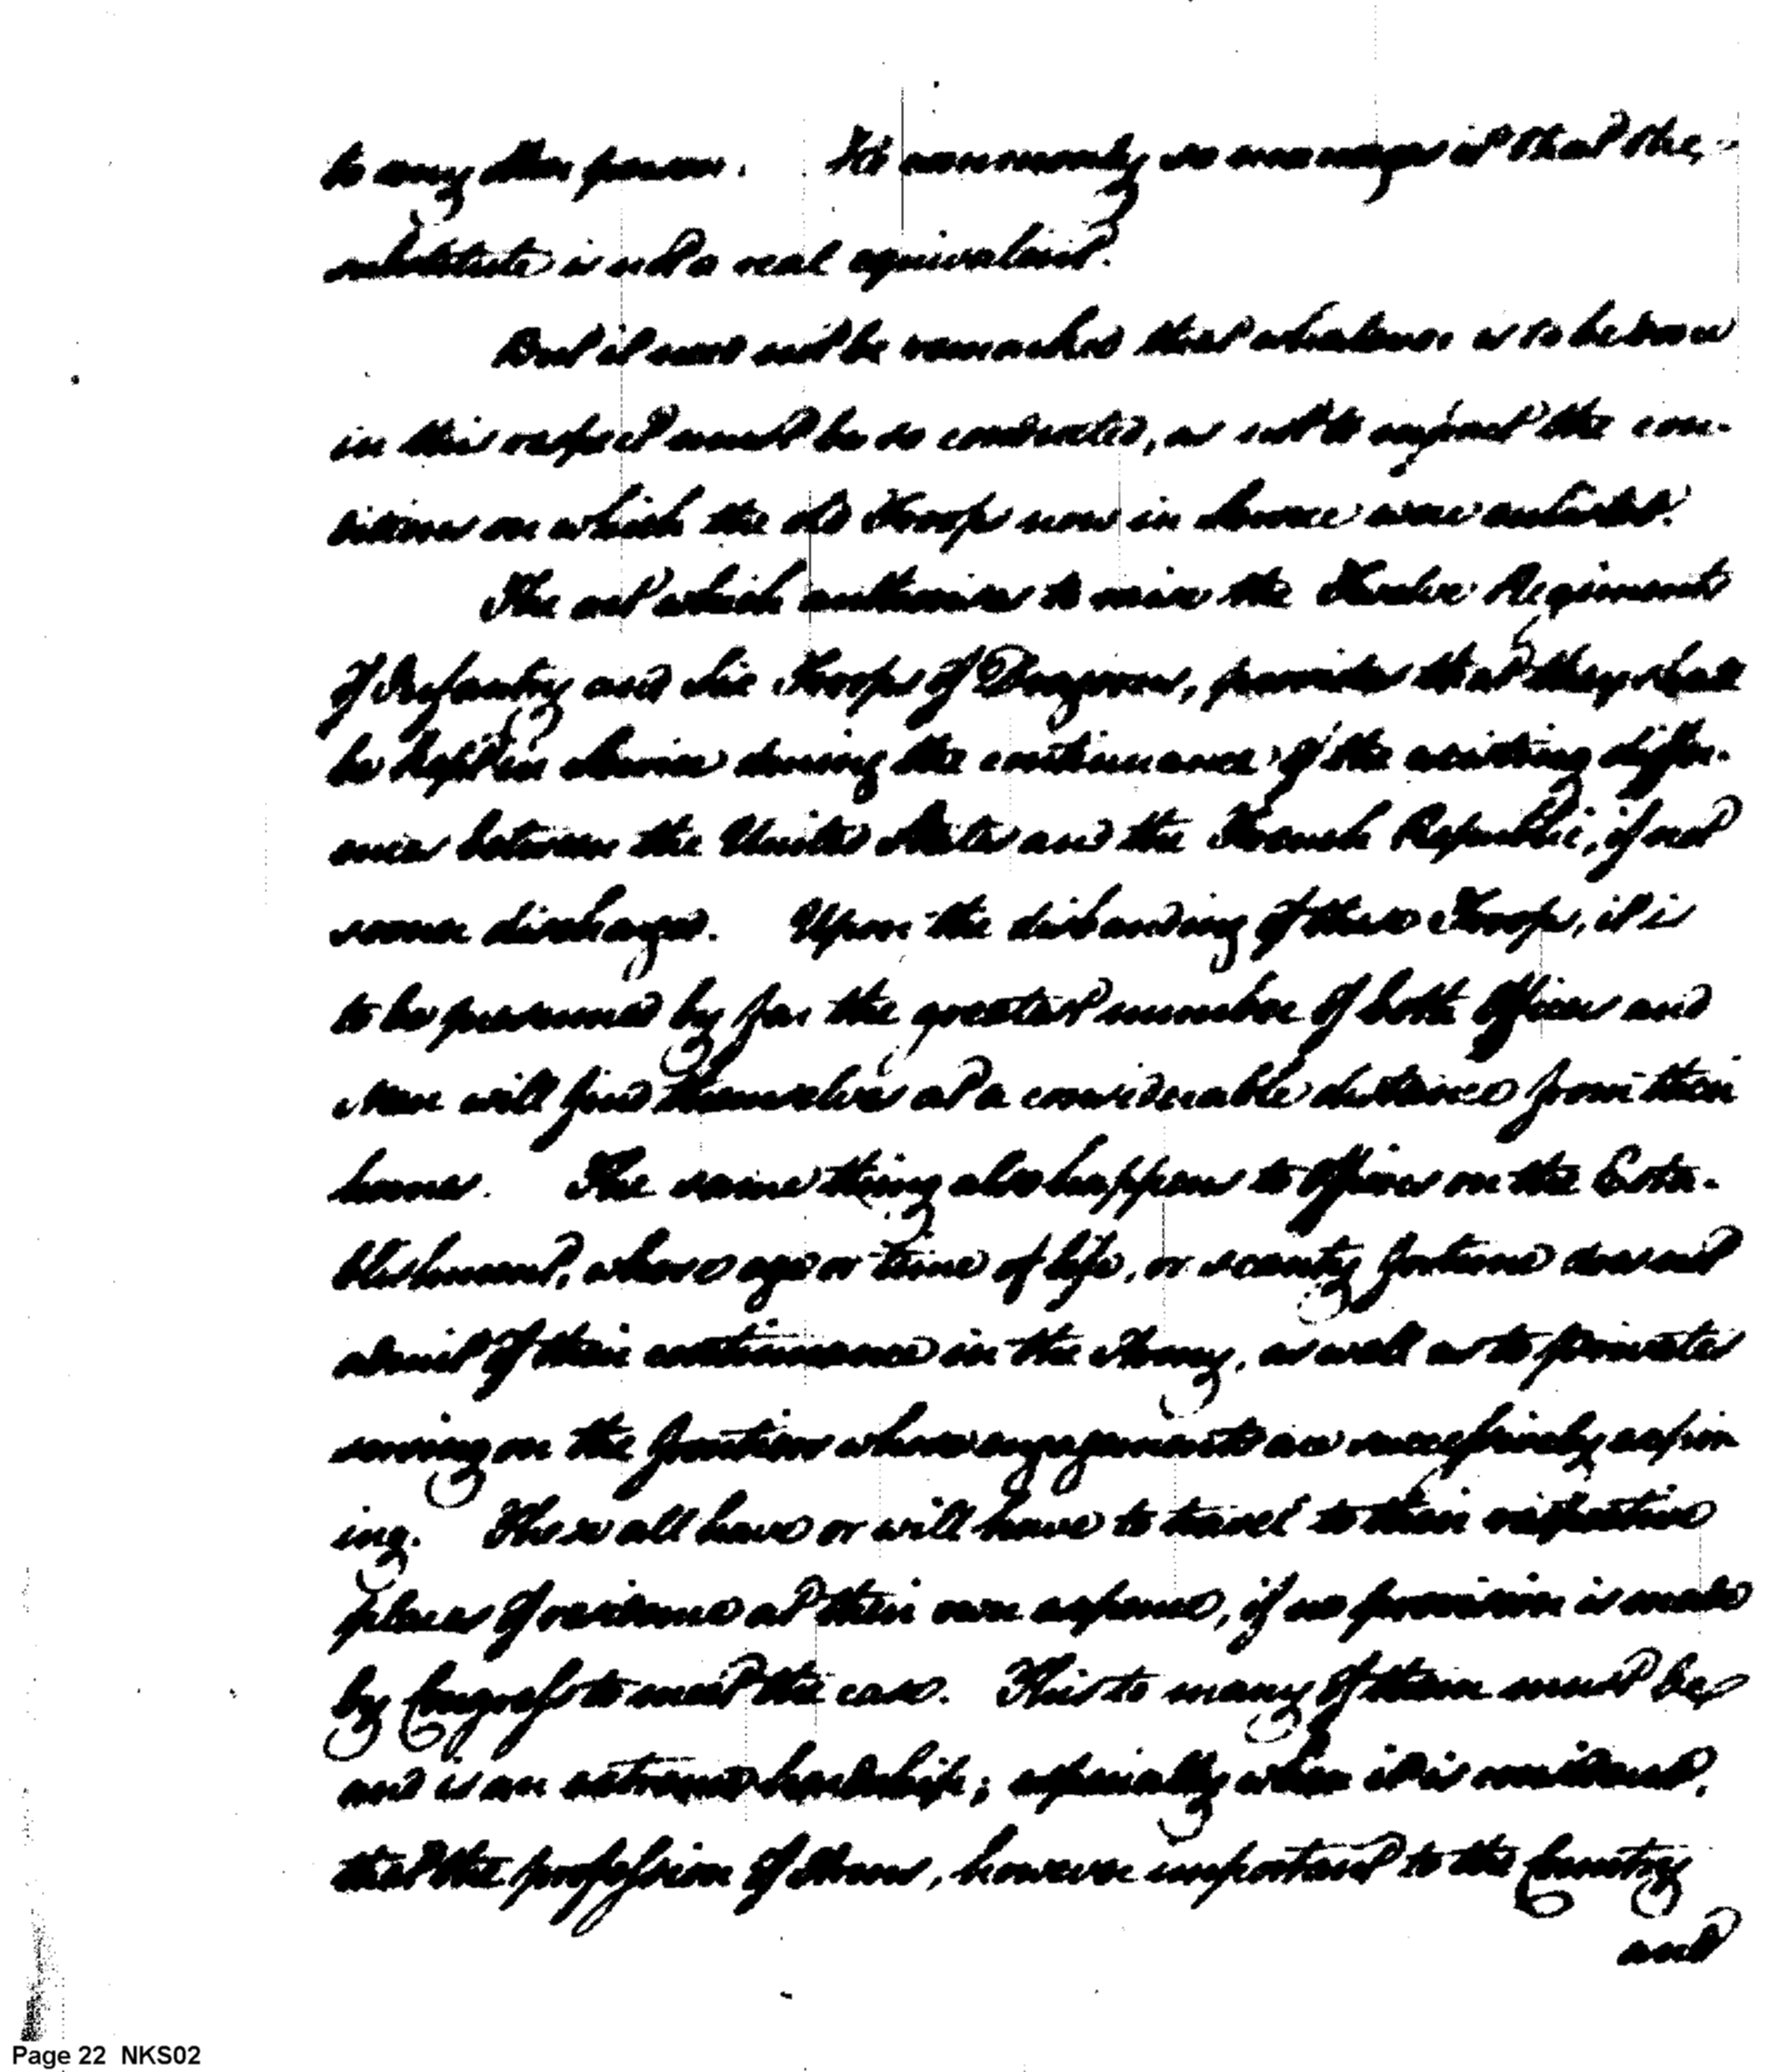 to any other person. It commonly so manages it that the
substitute is not a real equivalent.
But it must not be remarked that whatever is to be done
in this respect must be so conducted, as not to infract the con-
ditions on which the old Troops now in Service were enlisted.
The act which authorises to raise the Twelve Regiments
of Infantry and Six Troops of Dragoons, provides that they shall
be kept in Service during the continuance of the existing differ-
ences between the United States and the French Republic, if not
sooner discharged. Upon the disbanding of these Troops, it is
to be presumed by far the greatest number of both Officers and
Men will find themselves at a considerable distance from their
homes. The same thing also happens to Officers on the Esta-
blishment, whose age or time of life, or scanty fortune does not
admit of their continuance in the Army, as well as to privates
serving on the frontiers whose engagements are successively expir
ing. These all have or will have to travel to their respective
places of residence at their own expense, if no provision is made
by Congress to meet the case. This to many of them must be
and is an extreme hardship; especially when it is evident,
that the profession of Arms, however important to the Country
and
Page 22 NKS02